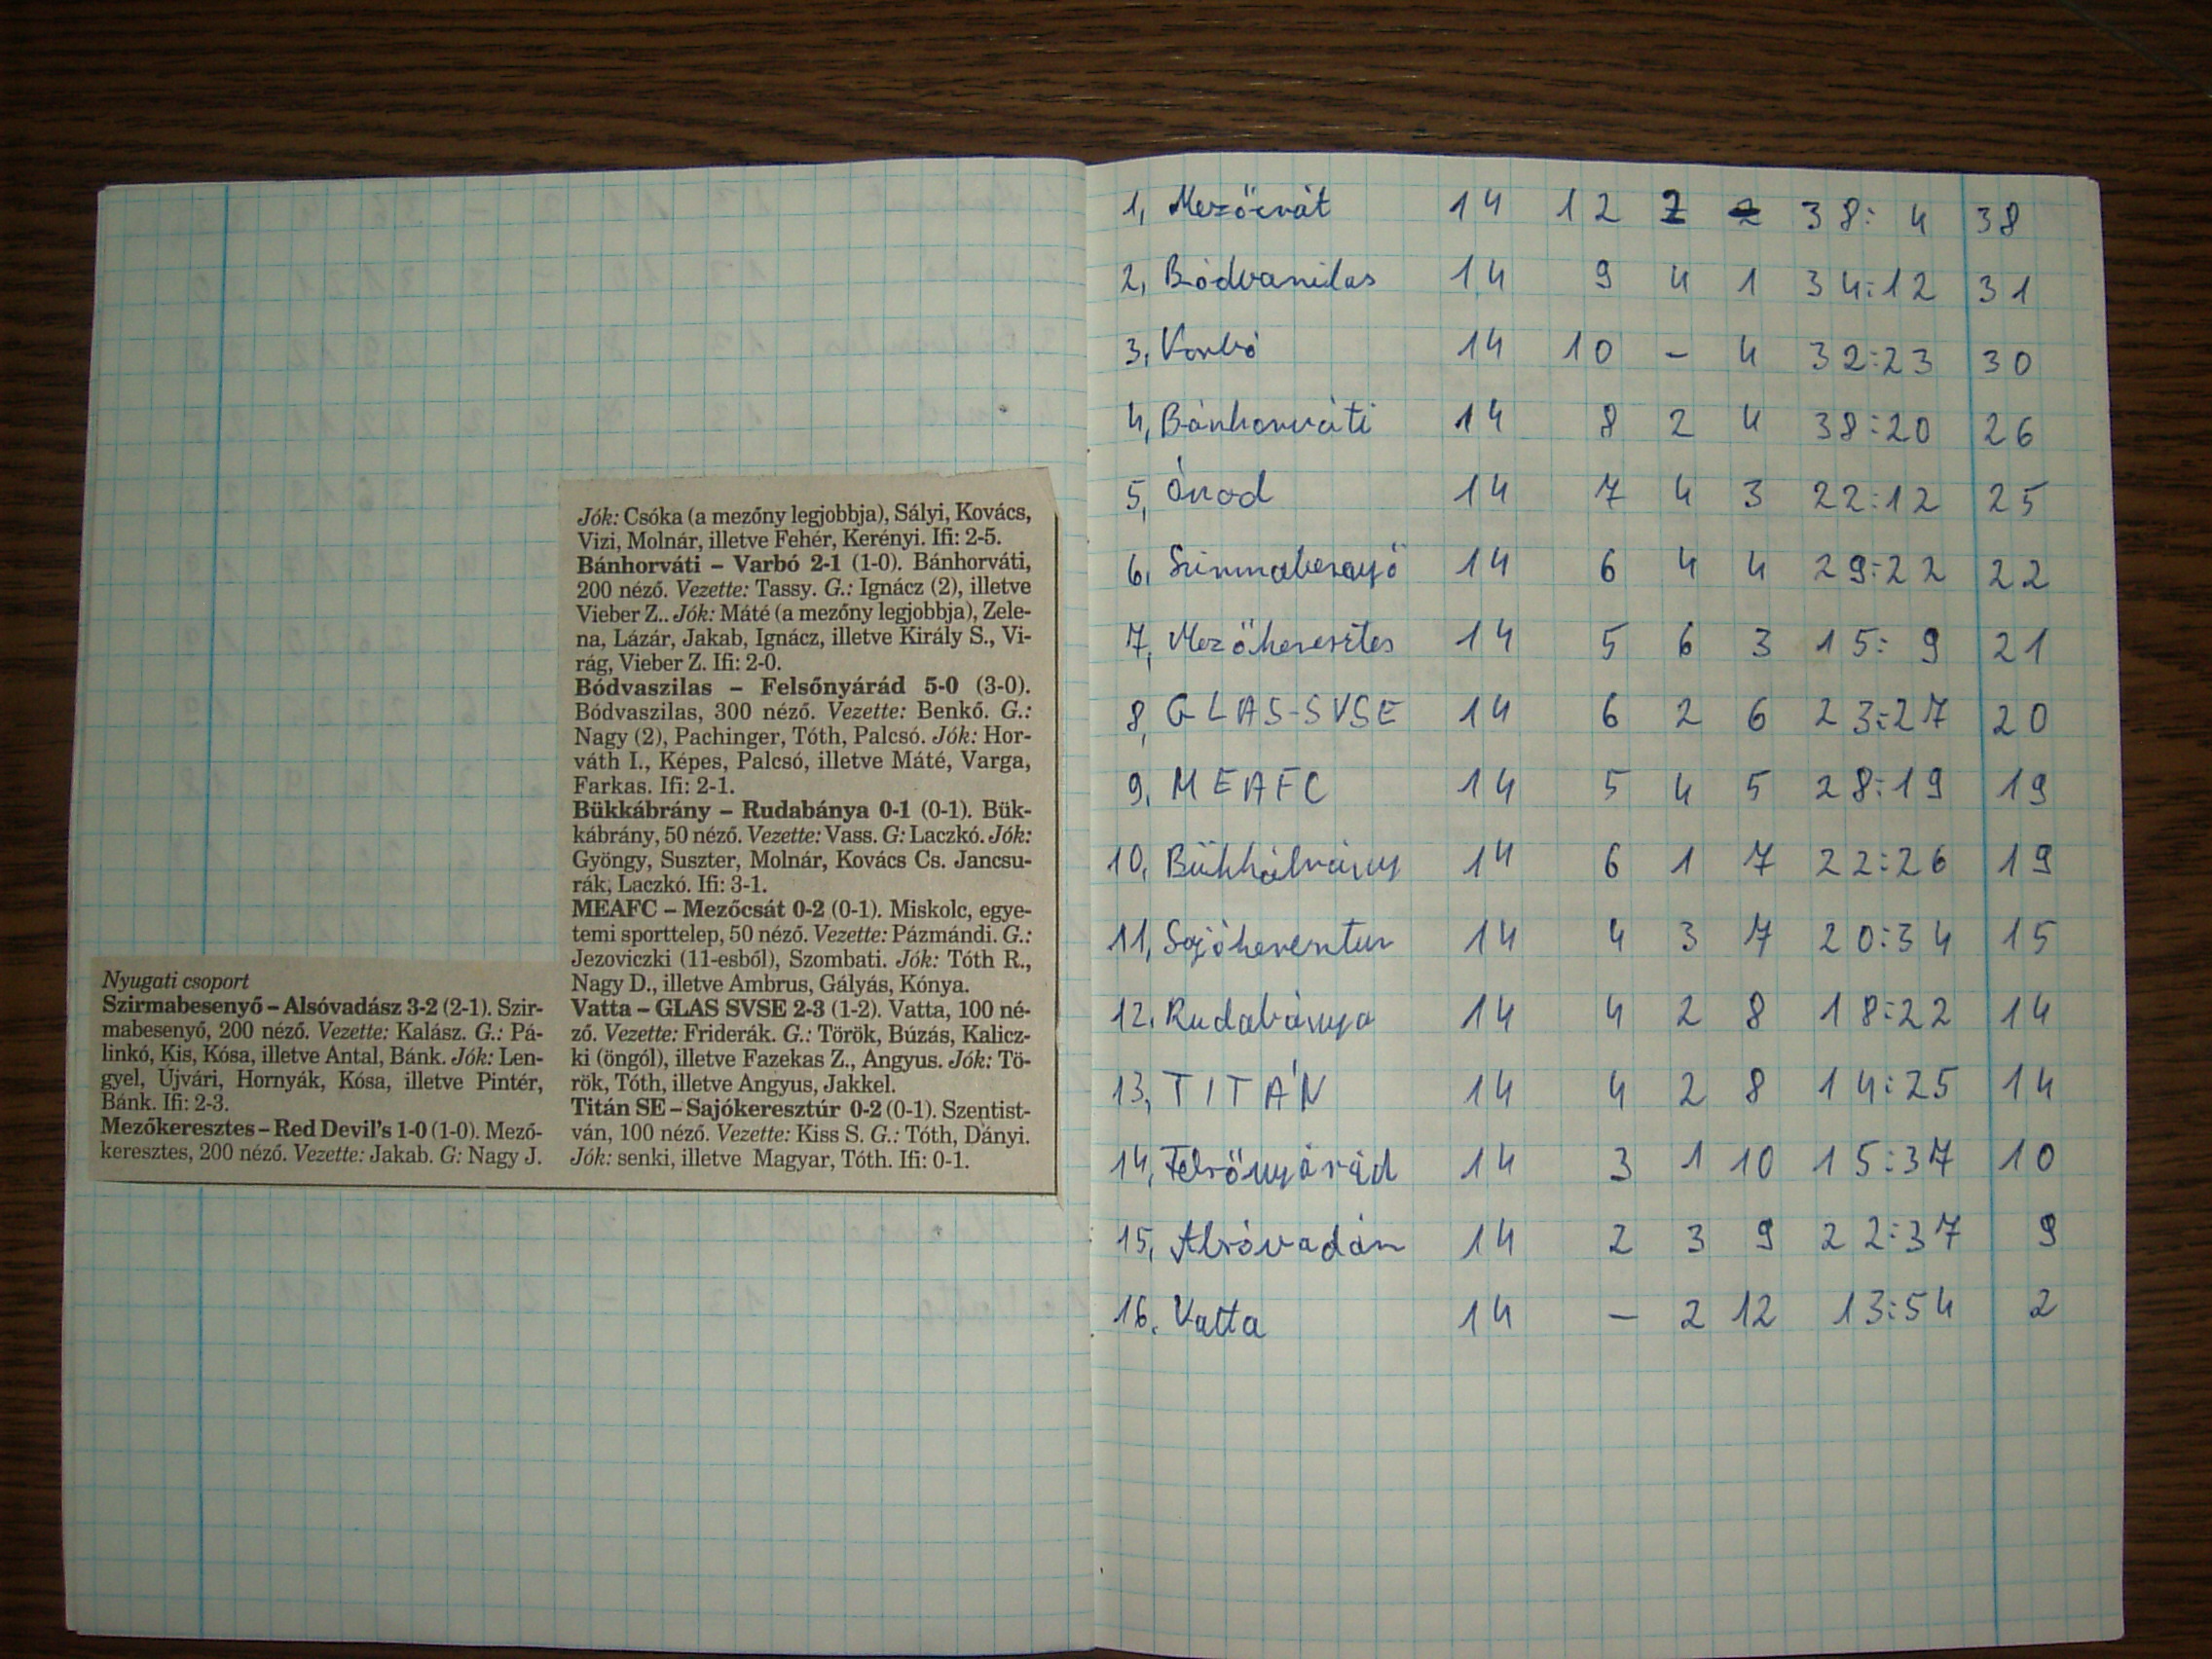 Nyugati csoport
Szirmabesenyő – Alsóvadász 3-2 (2-1). Szir-
mabesenyő, 200 néző. Vezette: Kalász. G.: Pá-
linkó, Kis, Kósa, illetve Antal, Bánk. Jók: Len-
gyel, Újvári, Hornyák, Kósa, illetve Pintér,
Bánk. Ifi: 2-3.
Mezőkeresztes – Red Devil's 1-0 (1-0). Mező-
keresztes, 200 néző. Vezette: Jakab. G: Nagy J.
Jók: Csóka (a mezőny legjobbja), Sályi, Kovács,
Vizi, Molnár, illetve Fehér, Kerényi. Ifi: 2-5.
Bánhorváti – Varbó 2-1 (1-0). Bánhorváti,
200 néző. Vezette: Tassy. G.: Ignácz (2), illetve
Vieber Z.. Jók: Máté (a mezőny legjobbja), Zele-
na, Lázár, Jakab, Ignácz, illetve Király S., Vi-
rág, Vieber Z. Ifi: 2-0.
Bódvaszilas – Felsőnyárád 5-0 (3-0).
Bódvaszilas, 300 néző. Vezette: Benkő. G.:
Nagy (2), Pachinger, Tóth, Palcsó. Jók: Hor-
váth I., Képes, Palcsó, illetve Máté, Varga,
Farkas. Ifi: 2-1.
Bükkábrány – Rudabánya 0-1 (0-1). Bük-
kábrány, 50 néző. Vezette: Vass. G: Laczkó. Jók:
Gyöngy, Suszter, Molnár, Kovács Cs. Jancsu-
rák, Laczkó. Ifi: 3-1.
MEAFC – Mezőcsát 0-2 (0-1). Miskolc, egye-
temi sporttelep, 50 néző. Vezette: Pázmándi. G.:
Jezoviczki (11-esből), Szombati. Jók: Tóth R.,
Nagy D., illetve Ambrus, Gályás, Kónya.
Vatta – GLAS SVSE 2-3 (1-2). Vatta, 100 né-
ző. Vezette: Friderák. G.: Török, Búzás, Kalicz-
ki (öngól), illetve Fazekas Z., Angyus. Jók: Tö-
rök, Tóth, illetve Angyus, Jakkel.
Titán SE – Sajókeresztúr 0-2 (0-1). Szentist-
ván, 100 néző. Vezette: Kiss S. G.: Tóth, Dányi.
Jók: senki, illetve Magyar, Tóth. Ifi: 0-1.
1, Mezőcsát 14 12 2 - 38: 4 38
2, Bódvaszilas 14 9 4 1 34:12 31
3, Varbó 14 10 - 4 32:23 30
4, Bánhorváti 14 8 2 4 38:20 26
5, Ónod 14 7 4 3 22:12 25
6, Szirmabesenyő 14 6 4 4 29:22 22
7, Mezőkeresztes 14 5 6 3 15: 9 21
8, GLAS-SVSE 14 6 2 6 23:27 20
9, MEAFC 14 5 4 5 28:19 19
10, Bükkábrány 14 6 1 7 22:26 19
11, Sajókeresztúr 14 4 3 7 20:34 15
12. Rudabánya 14 4 2 8 18:22 14
13, TITÁN 14 4 2 8 14:25 14
14, Felsőnyárád 14 3 1 10 15:37 10
15, Alsóvadász 14 2 3 9 22:37 9
16. Vatta 14 - 2 12 13:54 2